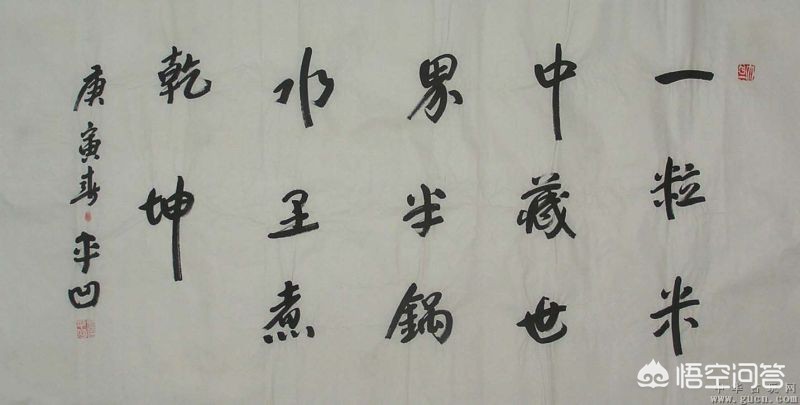 一粒米
中藏世
界半鍋
水里煮
乾坤
庚寅春平凹
悟空问答
www.gucn.com